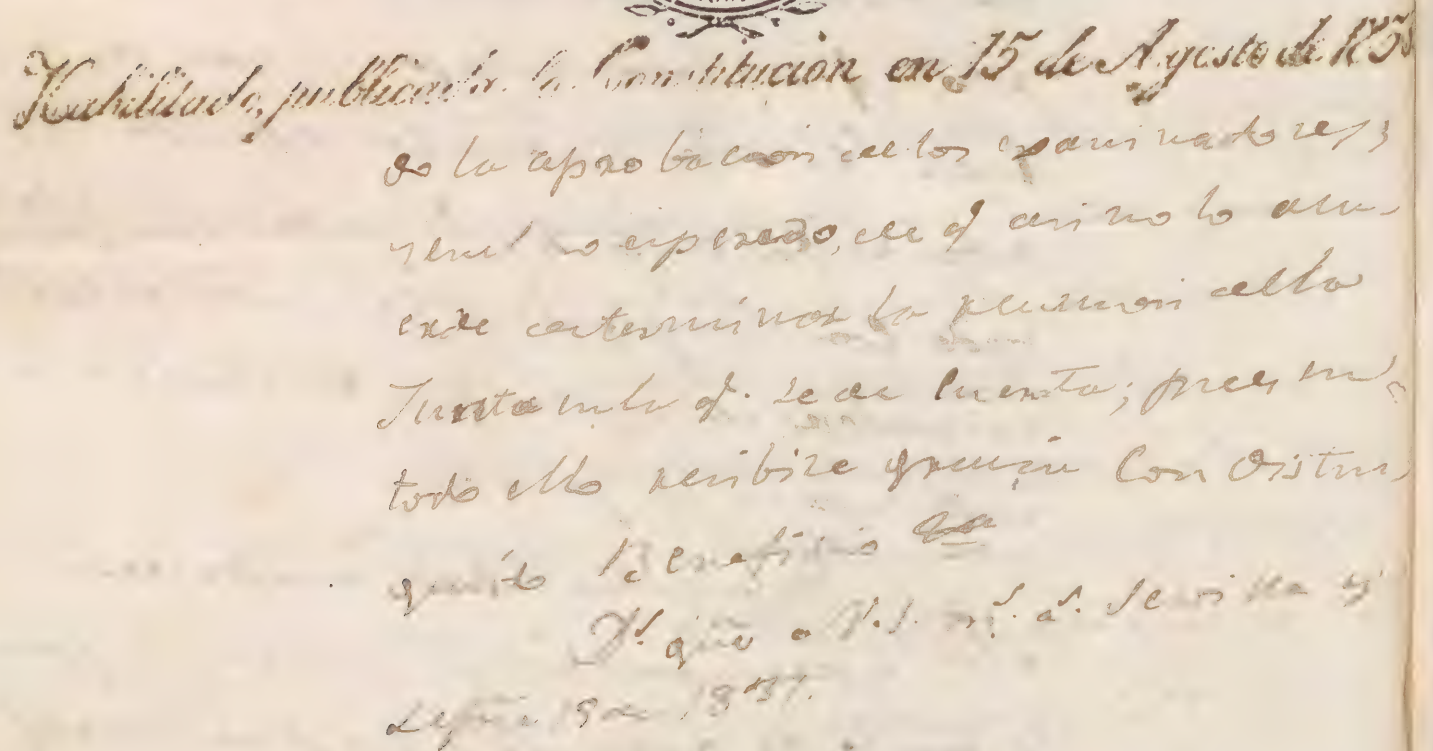 Habilitado, publicada la Constitucion en 15 de Agosto de 183
do la aprobacion de los examinadores,
no esperado, de q asi no lo
determinar la reunion de la
Junta en la q. se de Cuenta; pues en
todo ello recibire gracia Con distin
guido Beneficio
D.s gũe a V.S. m.s a.s Sevilla y
19 de 1837.